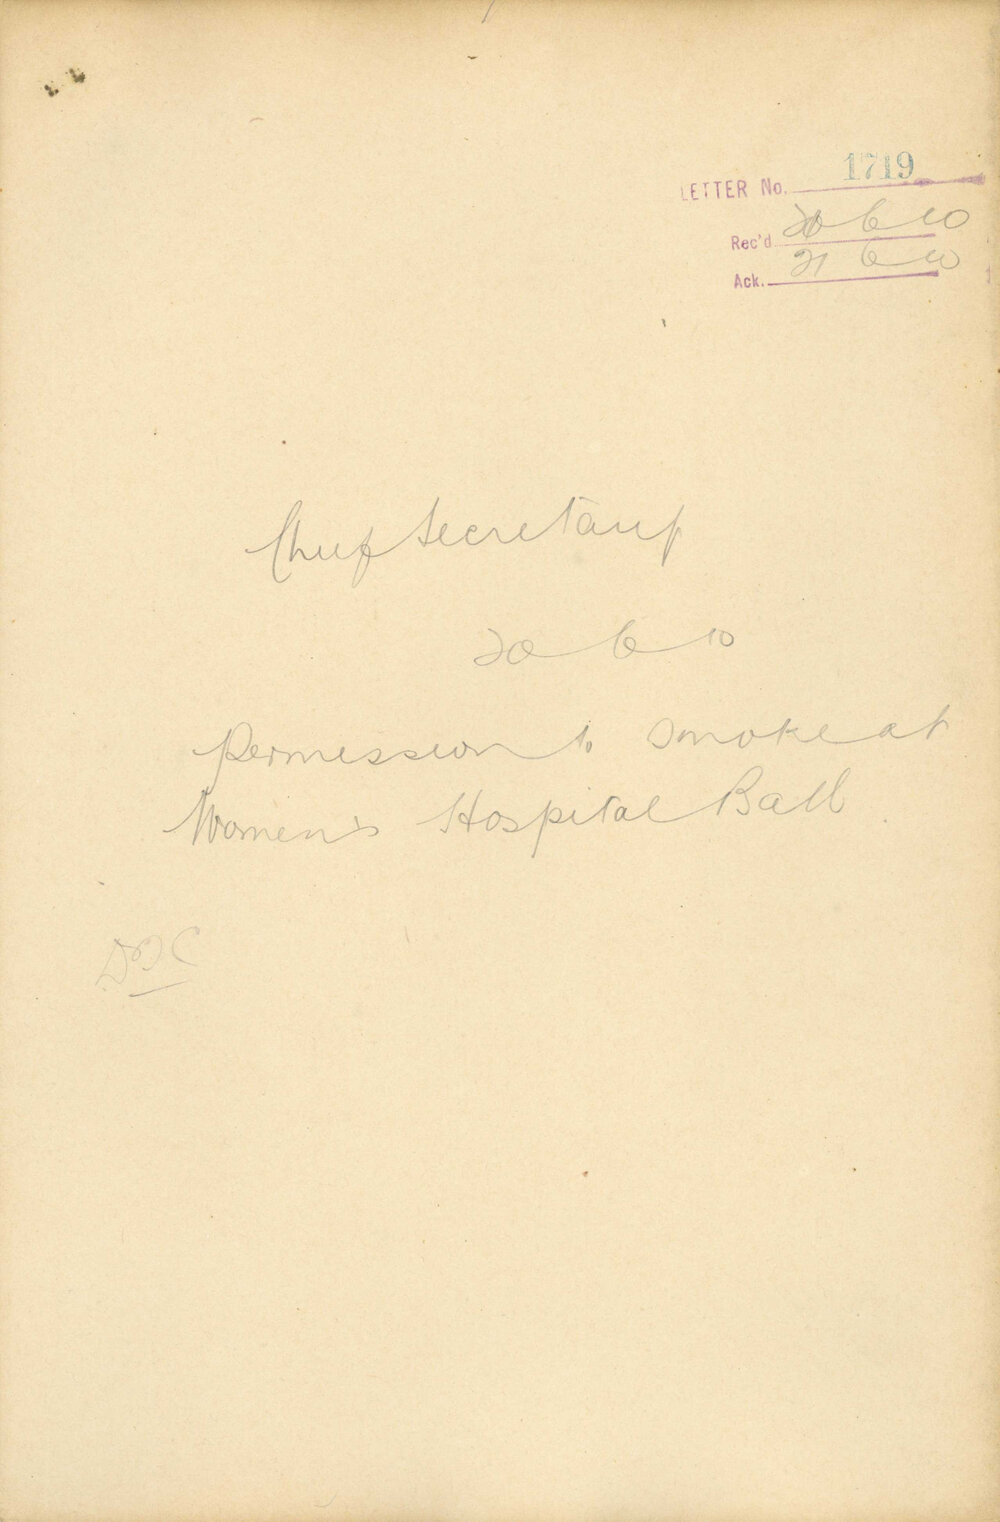 LETTER No. 1719
Rec'd 20 6 10
Ack. 21 6 10
Chief Secretary
20 6 10
Permission to smoke at
Women's Hospital Ball